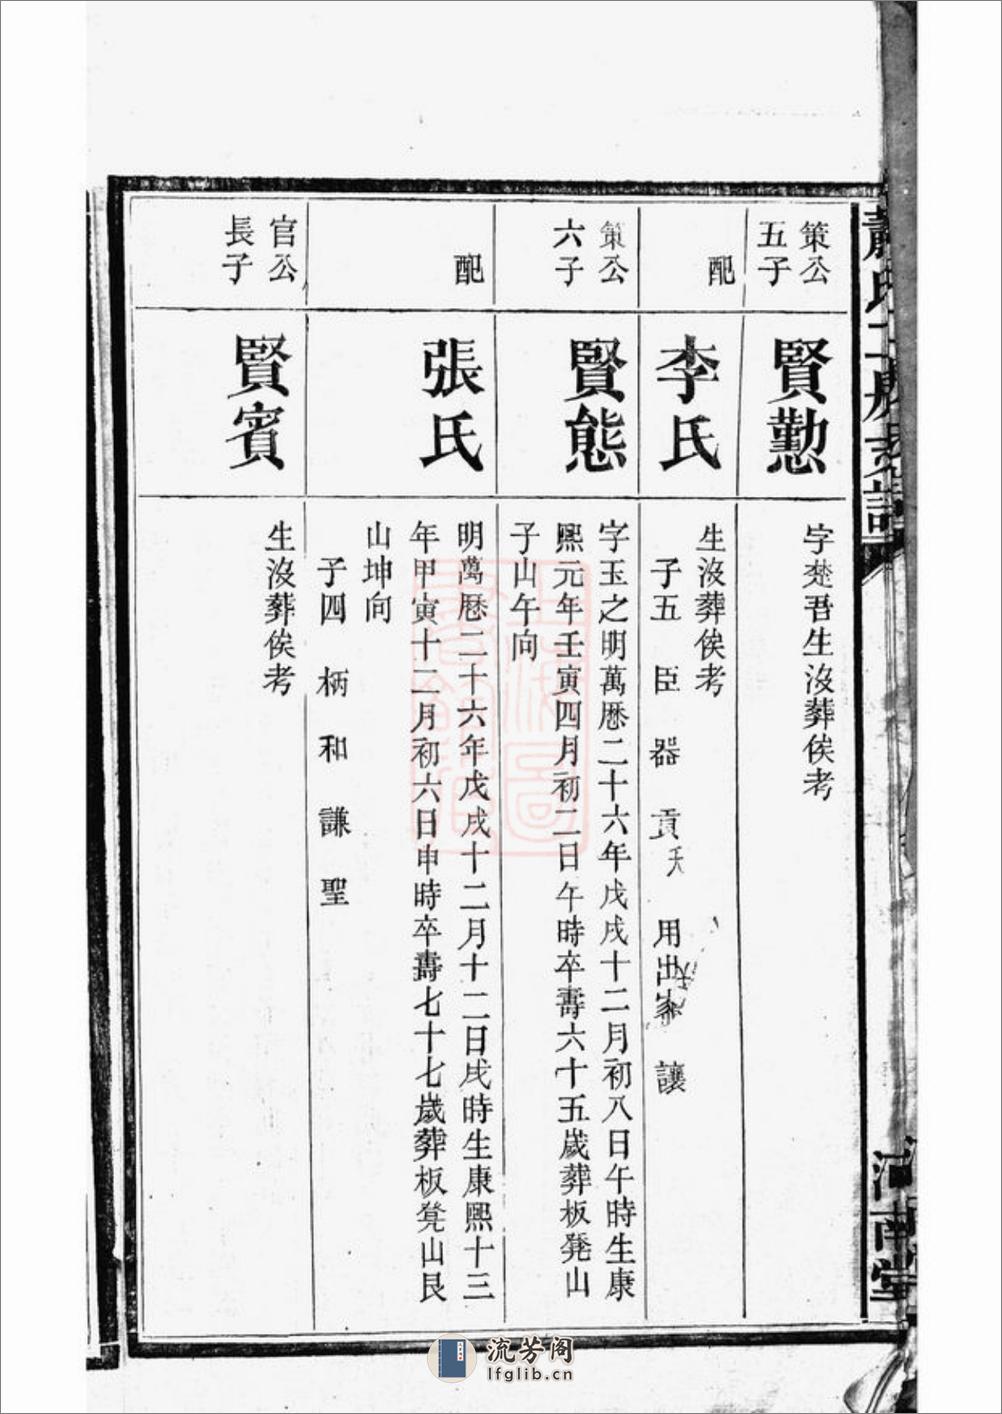 蕭氏二房支譜
河南堂
策公
五子
賢懃
字楚吾生沒葬俟考
配
李氏
生沒葬俟考
子五 臣 器 貢 用出家 讓
策公
六子
賢態
字玉之明萬曆二十六年戊戌十二月初八日午時生康
熙元年壬寅四月初二日午時卒壽六十五歲葬板凳山
子山午向
配
張氏
明萬曆二十六年戊戌十二月十二日戌時生康熙十三
年甲寅十二月初六日申時卒壽七十七歲葬板凳山艮
山坤向
子四 柄 和 謙 聖
官公
長子
賢賓
生沒葬俟考
流芳阁
lfglib.cn